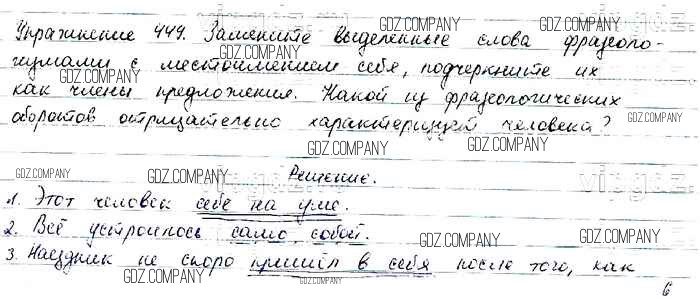 Упражнение 449. Замените выделенные слова фразеоло-
гизмами с местоимением себя, подчеркните их
как члены предложения. Какой из фразеологических
оборотов отрицательно характеризует человека?
Решение.
1. Этот человек себе на уме.
2. Всё устроилось само собой.
3. Наездник не скоро пришёл в себя после того, как
6
GDZ.COMPANY
GDZ.COMPANY
GDZ.COMPANY
GDZ.COMPANY
GDZ.COMPANY
GDZ.COMPANY
GDZ.COMPANY
GDZ.COMPANY
GDZ.COMPANY
GDZ.COMPANY
GDZ.COMPANY
GDZ.COMPANY
GDZ.COMPANY
GDZ.COMPANY